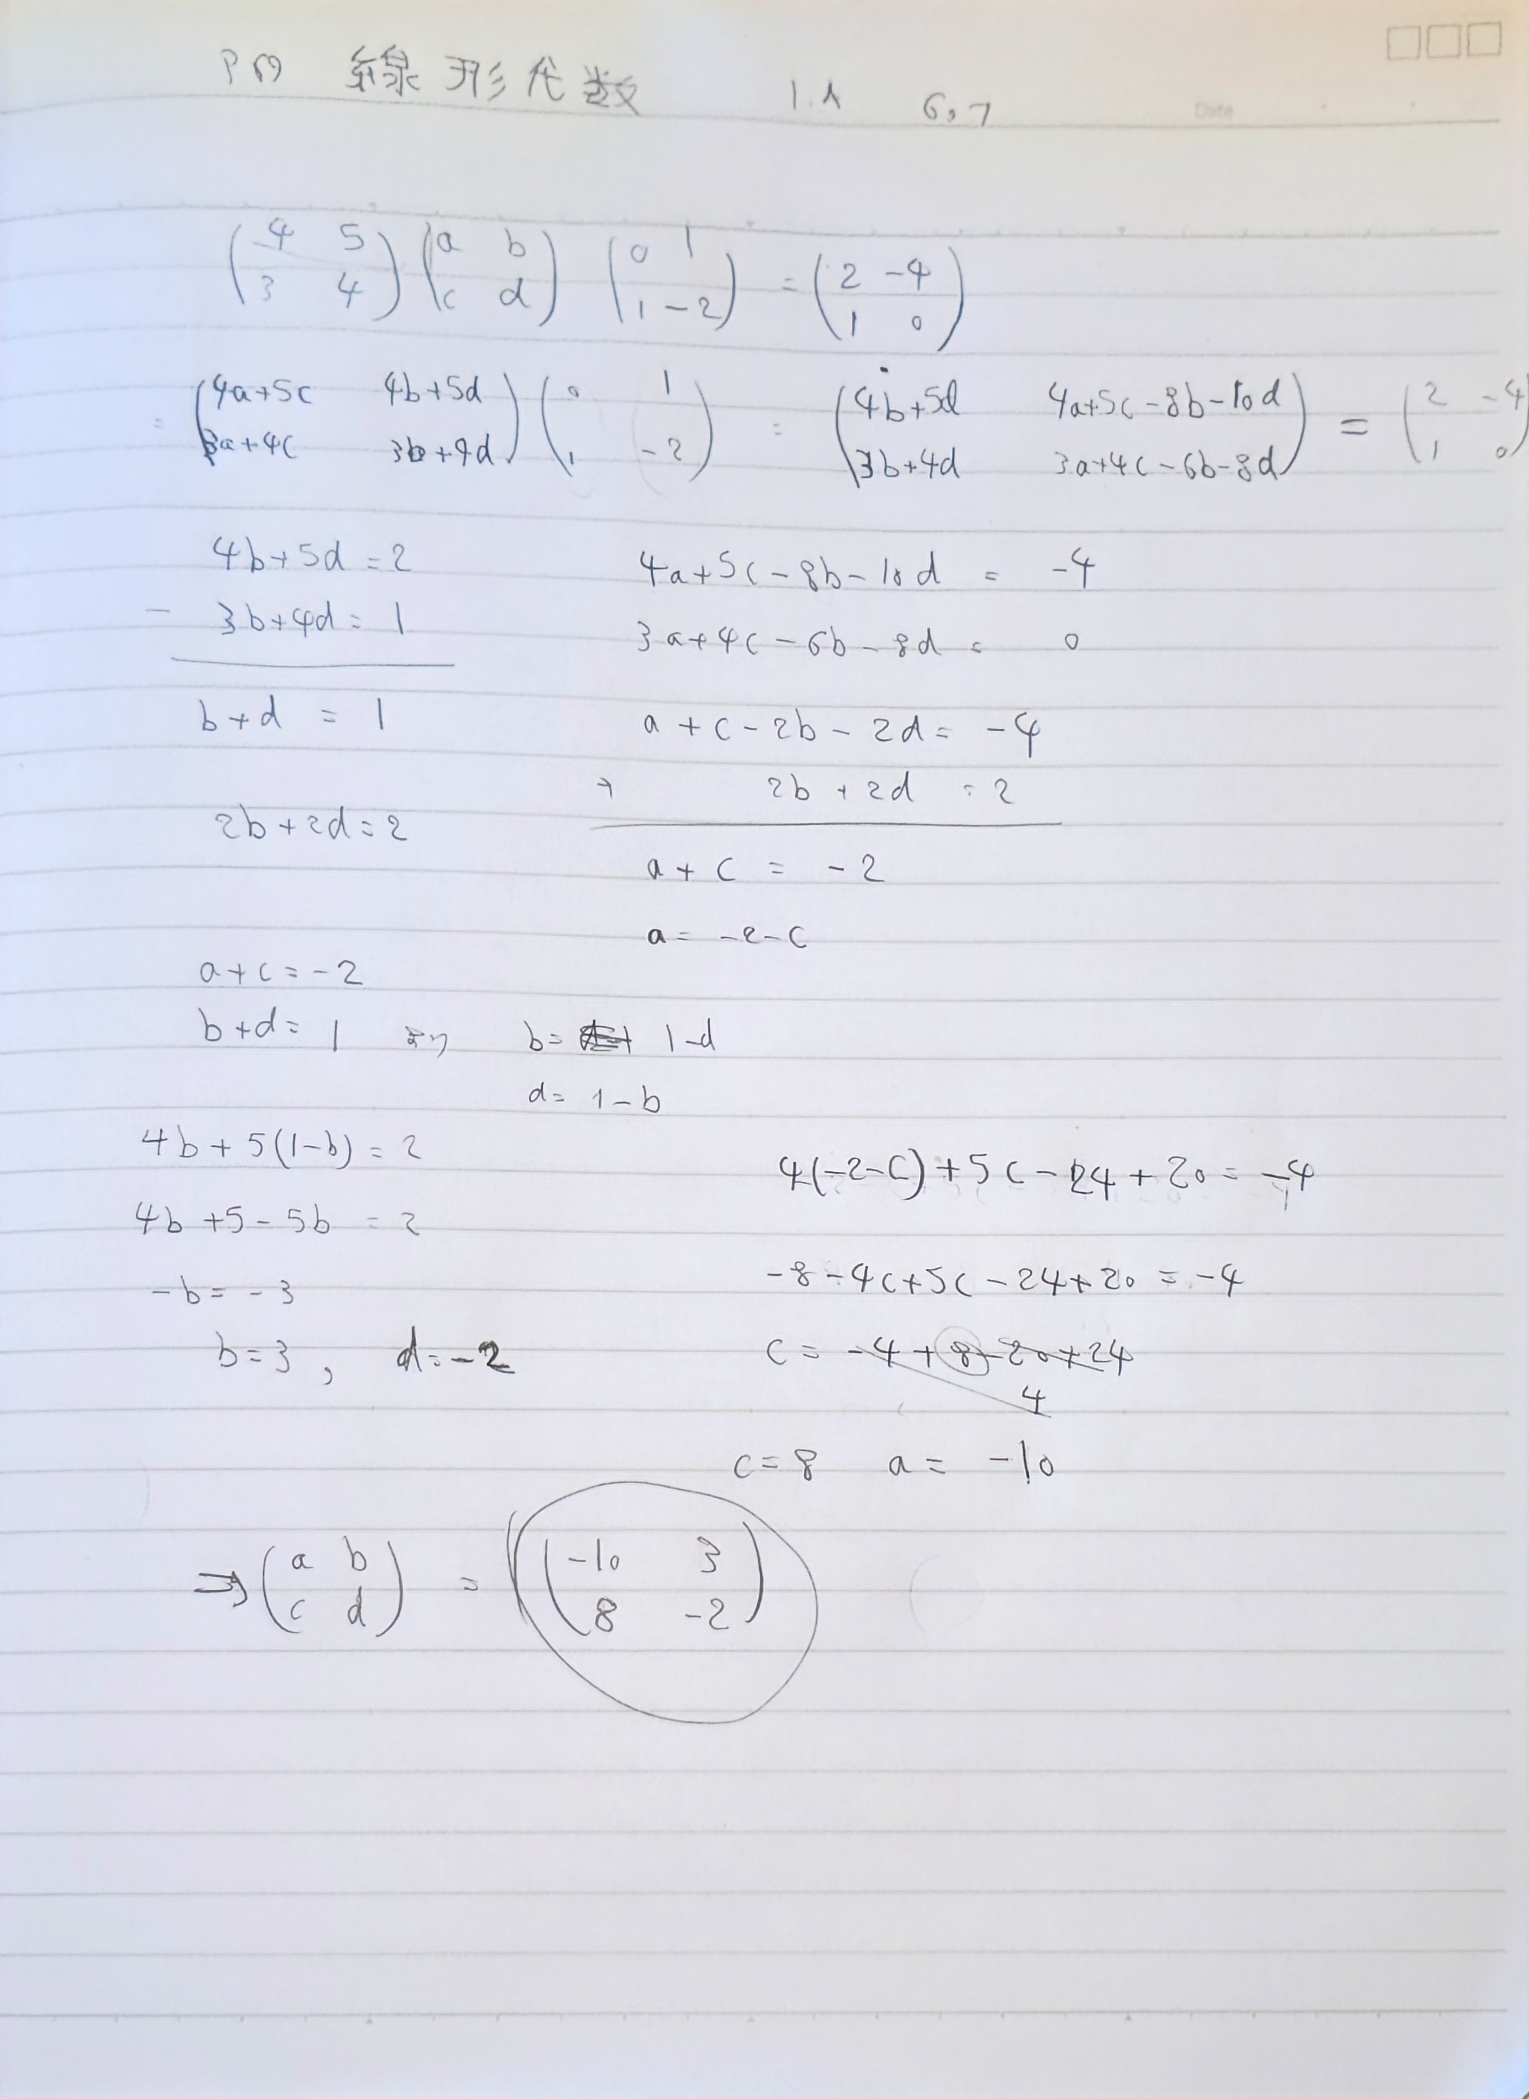 P 69 線形代数 1.A 6,7
Date
(4 5 / 3 4) (a b / c d) (0 1 / 1 -2) = (2 -4 / 1 0)
= (4a+5c 4b+5d / 3a+4c 3b+4d) (0 1 / 1 -2) = (4b+5d 4a+5c-8b-10d / 3b+4d 3a+4c-6b-8d) = (2 -4 / 1 0)
4b+5d=2
- 3b+4d=1
b+d = 1
2b+2d=2
4a+5c-8b-10d = -4
3a+4c-6b-8d = 0
a+c-2b-2d= -4
+ 2b+2d = 2
a+c = -2
a= -2-c
a+c=-2
b+d=1 より b= 1-d
d= 1-b
4b+5(1-b)=2
4b+5-5b = 2
-b=-3
b=3, d=-2
4(-2-c)+5c-24+20=-4
-8-4c+5c-24+20=-4
c= -4+8-20+24
4
c=8 a= -10
⇒ (a b / c d) = (-10 3 / 8 -2)